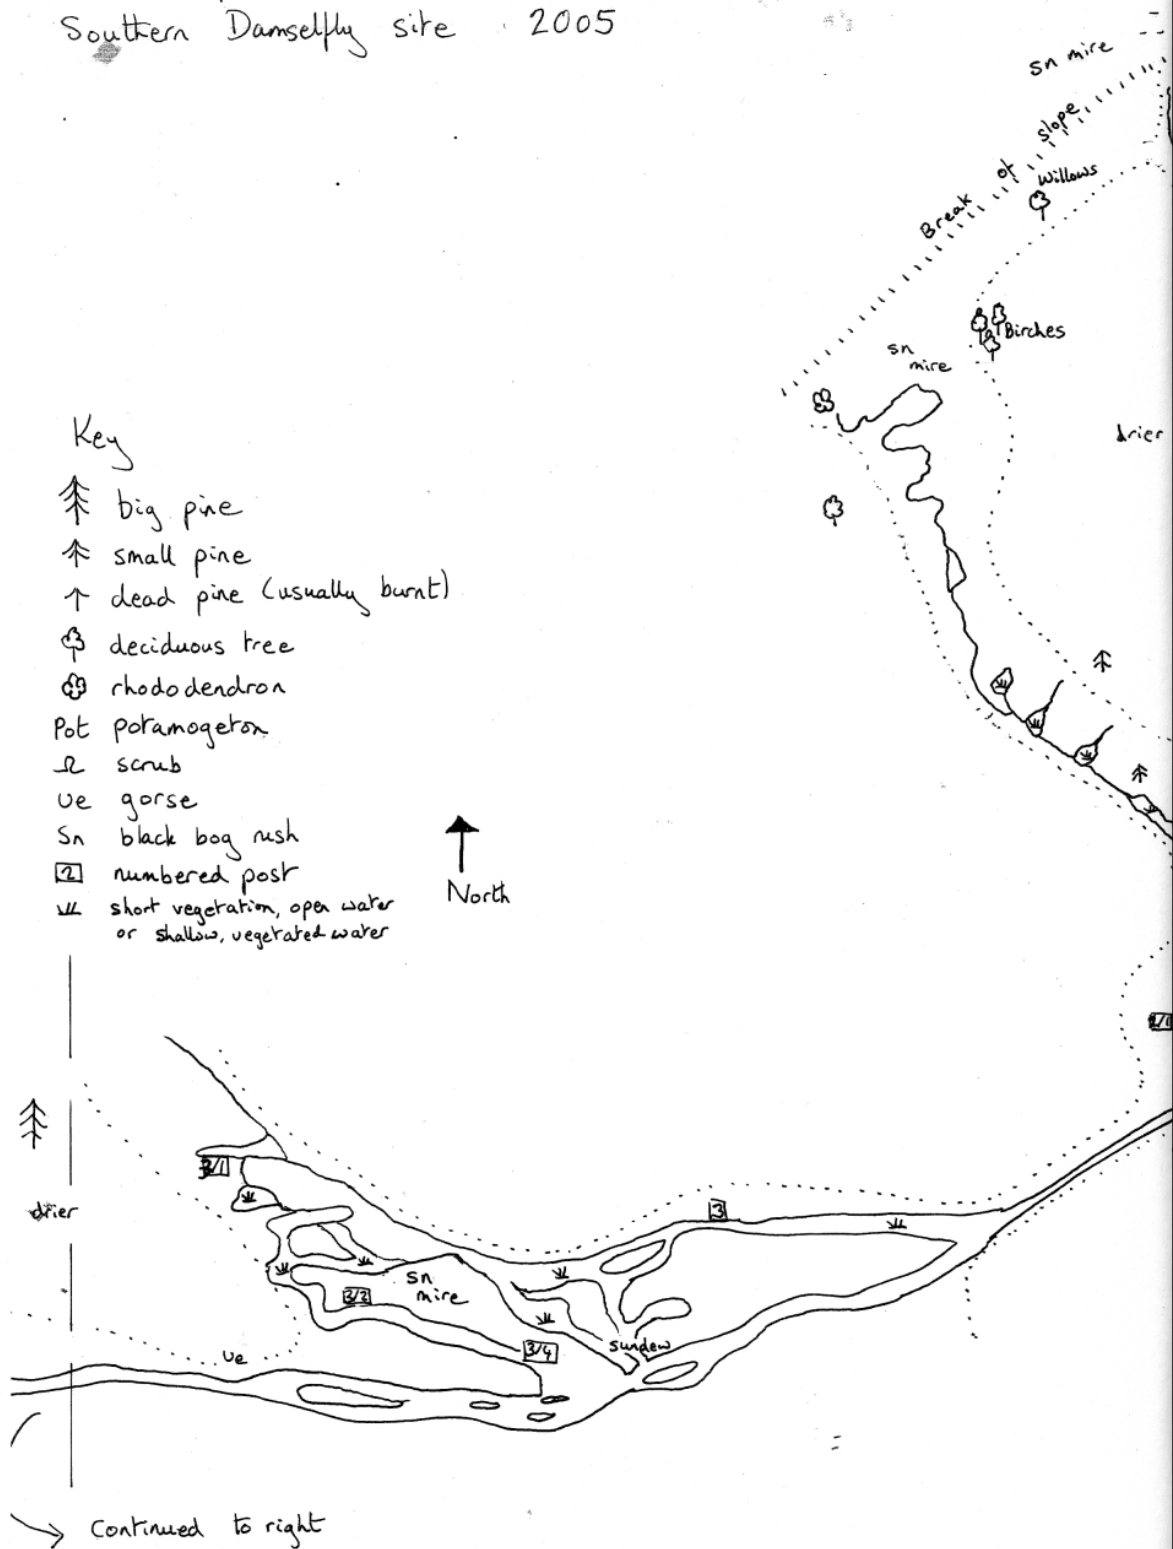 Southern Damselfly site 2005
Sn mire
Break of slope
Willows
Birches
sn
mire
drier
Key
big pine
small pine
dead pine (usually burnt)
deciduous tree
rhododendron
Pot potamogeton
scrub
Ue gorse
Sn black bog rush
2 numbered post
short vegetation, open water
or shallow, vegetated water
North
3/1
drier
3
sn
mire
3/2
3/4
sundew
Ue
Continued to right